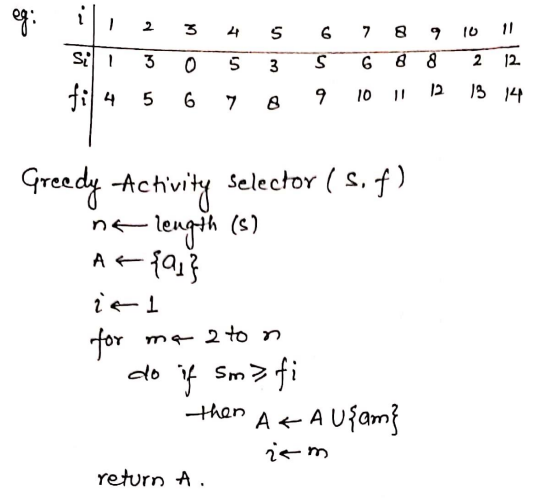 eg: i 1 2 3 4 5 6 7 8 9 10 11
si 1 3 0 5 3 5 6 8 8 2 12
fi 4 5 6 7 8 9 10 11 12 13 14
Greedy-Activity selector (s, f)
n ← length (s)
A ← {a1}
i ← 1
for m ← 2 to n
do if sm ≥ fi
then A ← A U {am}
i ← m
return A.